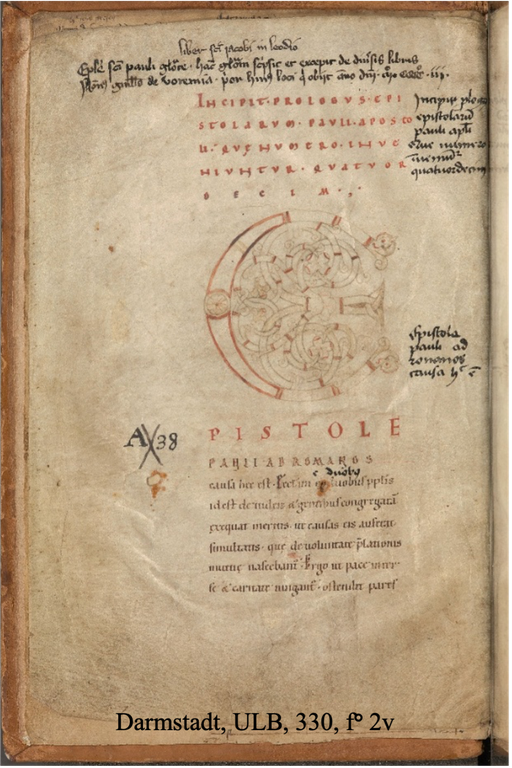 liber sci jacobi in leodio
Eple sci pauli glose. hac glosa scpsit et excepit de diusis libris
de voremia. por hui9 loci q obijt año dñi. mº cccc. iij.
INCIPIT. PROLOGVS. EPI
STOLARVM. PAVLI. APOSTO
LI. QVE NVMERO. INVE
NIVNTVR. QVATVOR
DECIM.
Incipit plogo
epistolarū
pauli apli
que numero
quatuordecim
Epistola
pauli ad
romanos
causa h ē
A 38
E
PISTOLE
PAVLI AD ROMANOS
causa hec est. duobus
duobus pplis
id est de iudeis & gentibus congregatā
exequat meritis. ut causas eis auferat
simultatis. que de voluntate plationis
mutue nascebant. Ergo ut pace inter
se & caritate iungant. ostendit pares
Darmstadt, ULB, 330, fº 2v